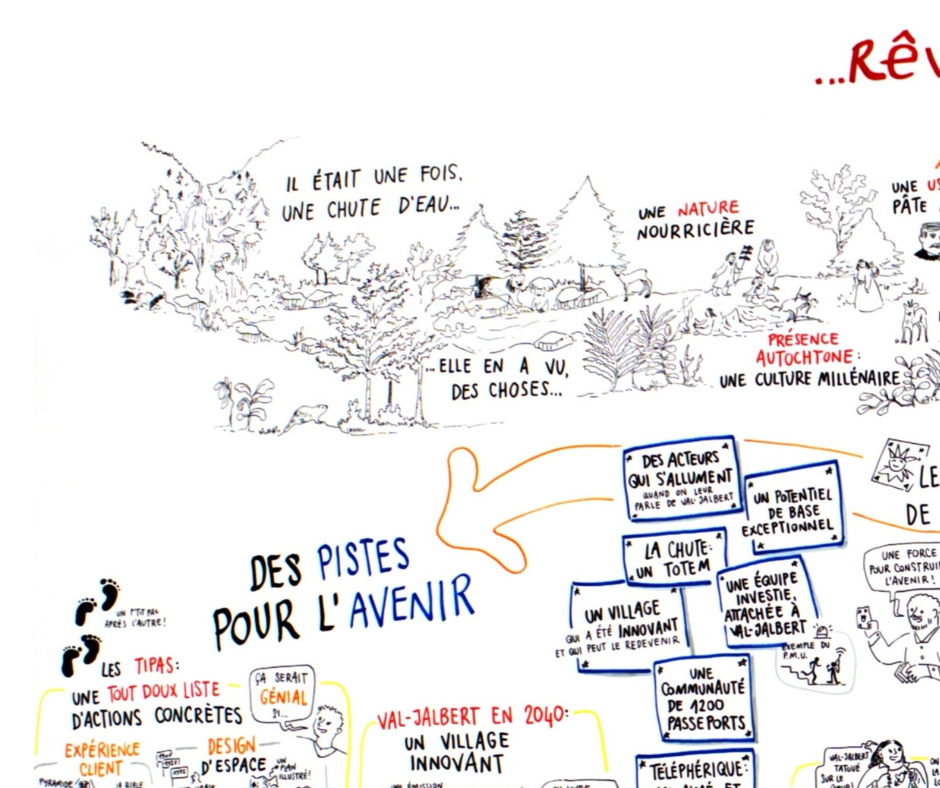 ...Rêv
IL ÉTAIT UNE FOIS,
UNE CHUTE D'EAU...
UNE NATURE
NOURRICIÈRE
UNE US
PÂTE
...ELLE EN A VU,
DES CHOSES...
PRÉSENCE
AUTOCHTONE:
UNE CULTURE MILLÉNAIRE
DES ACTEURS
QUI S'ALLUMENT
QUAND ON LEUR
PARLE DE VAL-JALBERT
UN POTENTIEL
DE BASE
EXCEPTIONNEL
LE
DE
LA CHUTE:
UN TOTEM
UNE ÉQUIPE
INVESTIE,
ATTACHÉE À
VAL-JALBERT
UN VILLAGE
QUI A ÉTÉ INNOVANT
ET QUI PEUT LE REDEVENIR
UNE FORCE
POUR CONSTRUIR
L'AVENIR!
EXEMPLE DU
P.M.U.
UNE
COMMUNAUTÉ
DE 1200
PASSEPORTS
TÉLÉPHÉRIQUE:
DES PISTES
POUR L'AVENIR
UN P'TIT PAS
APRÈS L'AUTRE!
LES TIPAS:
UNE TOUT DOUX LISTE
D'ACTIONS CONCRÈTES
ÇA SERAIT
GÉNIAL
SI...
EXPÉRIENCE
CLIENT
PYRAMIDE
LA BIBLE
DESIGN
D'ESPACE
UN PLAN
ILLUSTRÉ!
VAL-JALBERT EN 2040:
UN VILLAGE
INNOVANT
UNE ÉMISSION
VAL-JALBERT
TATOUÉ
SUR LE